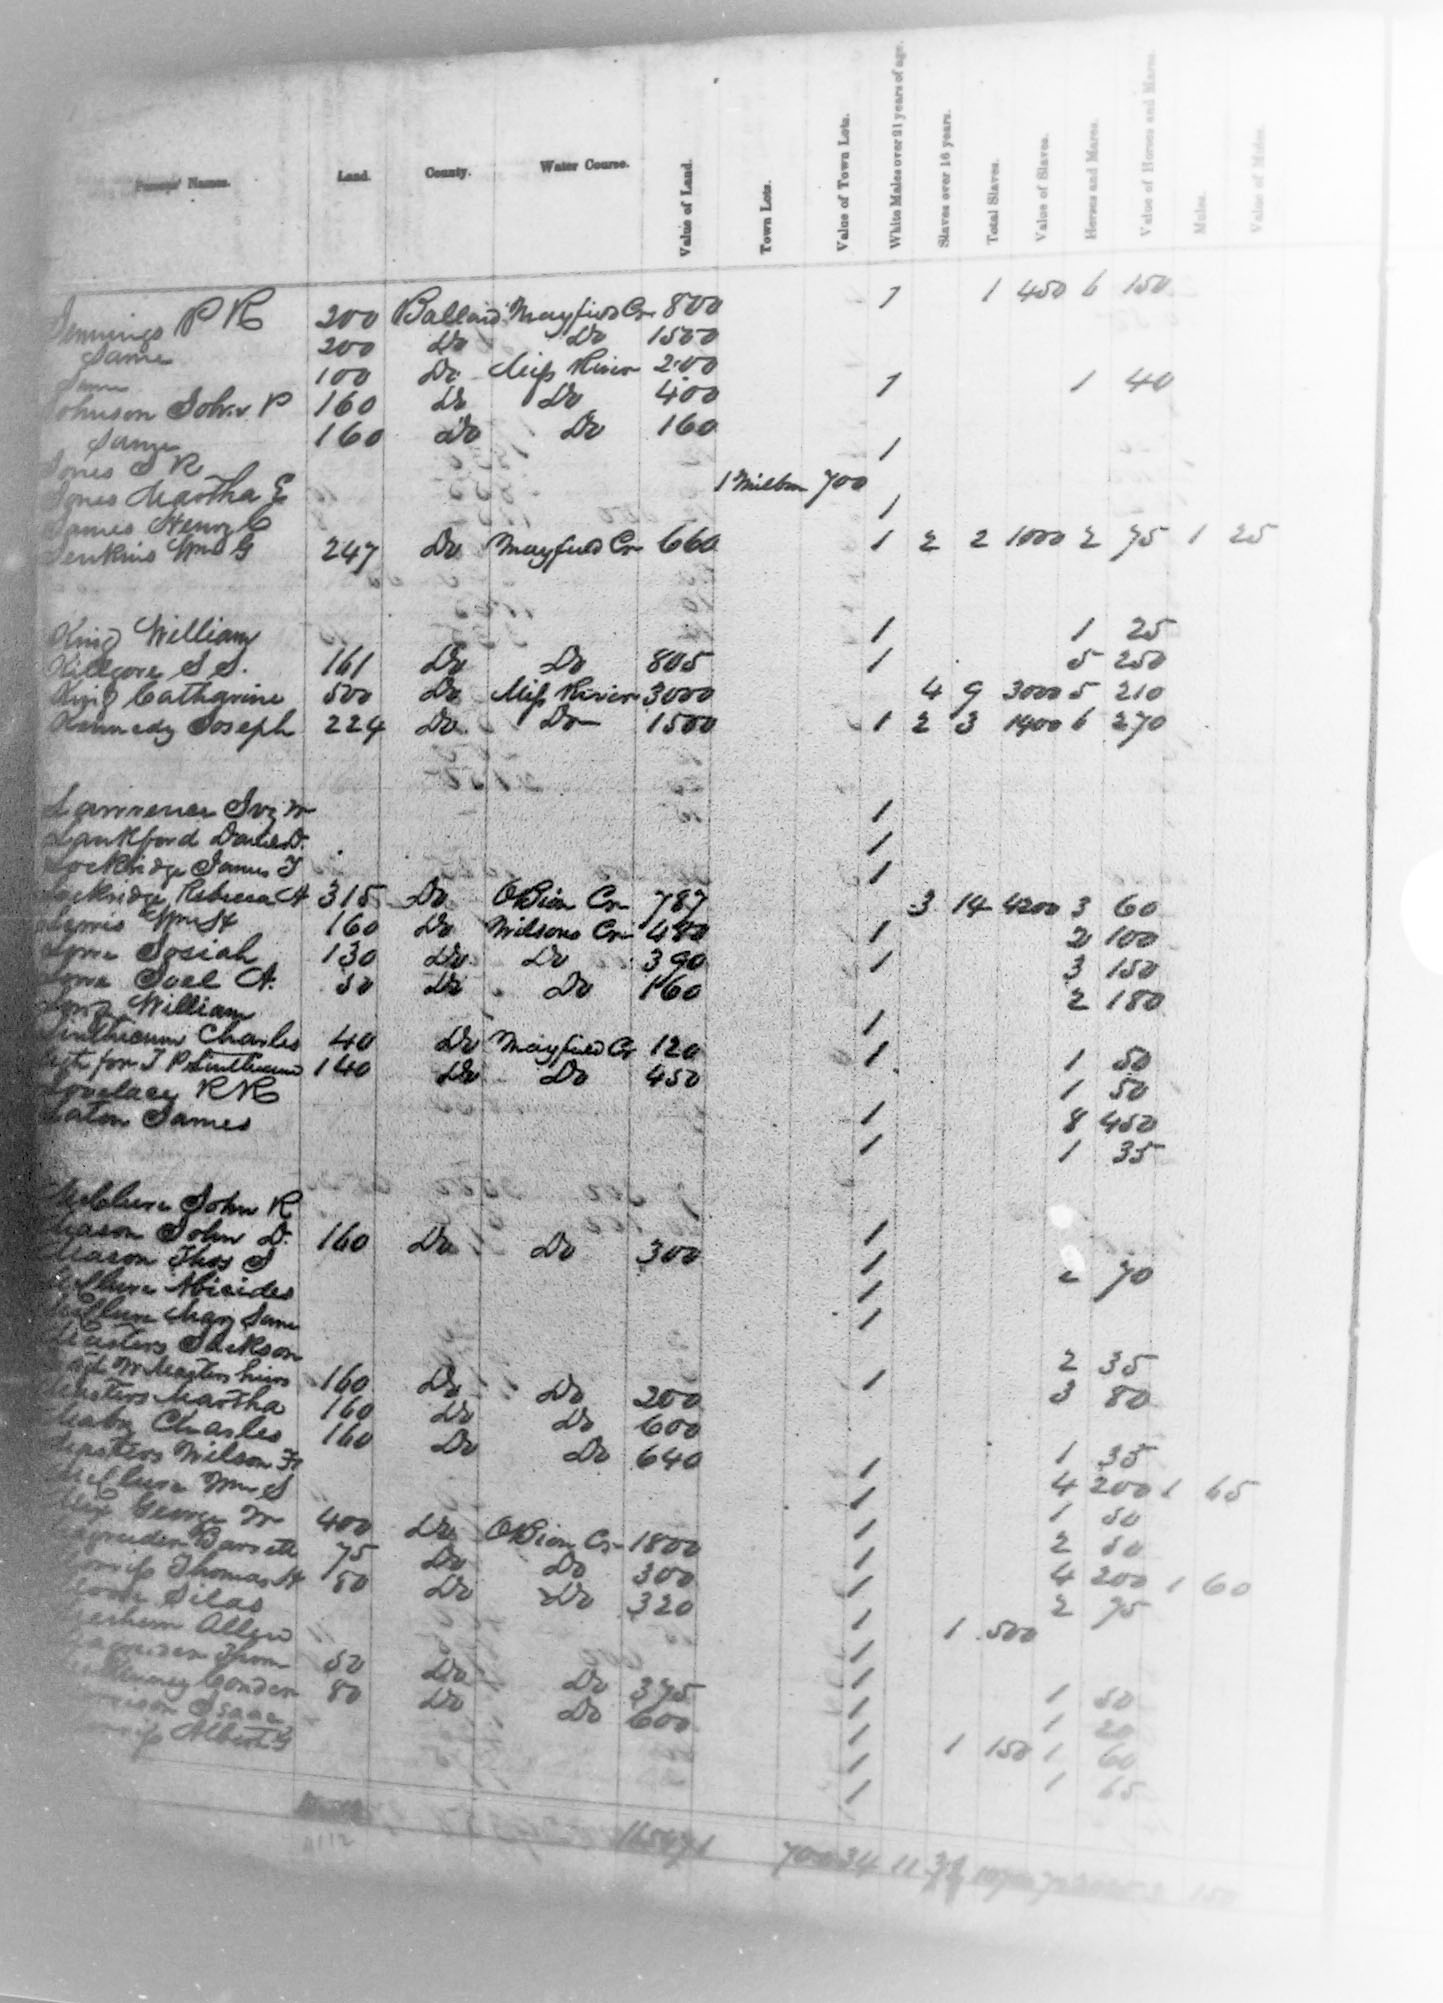 Persons' Names. Land. County. Water Course. Value of Land. Town Lots. Value of Town Lots. White Males over 21 years of age. Slaves over 16 years. Total Slaves. Value of Slaves. Horses and Mares. Value of Horses and Mares. Mules. Value of Mules.
Jennings P R 200 Ballard Mayfield Cr 800 1 1 450 6 150
Same 200 Do Do 1500
Same 100 Do Miss River 200
Johnson John P 160 Do Do 400 1 1 40
Same 160 Do Do 160
Jones S R 1
Jones Martha E 1 Milbn 700
James Henry C 1
Jenkins Wm G 247 Do Mayfield Cr 660 1 2 2 1000 2 75 1 25
King William 1 1 25
Killgore S S. 161 Do Do 805 1 5 250
King Catharine 500 Do Miss River 3000 4 9 3000 5 210
Kennedy Joseph 224 Do Do 1500 1 2 3 1400 6 270
Lawrence 1
Lankford 1
Lockridge James T 1
Lockridge Rebecca A 315 Do OBion Cr 787 3 14 4200 3 60
Lewis Wm H 160 Do Wilsons Cr 480 1 2 100
Lowe Josiah 130 Do Do 390 1 3 150
Lowe Joel A. 50 Do Do 160 2 180
Long William 1
Linthicum Charles 40 Do Mayfield Cr 120 1 1 50
for J P Linthicum 140 Do Do 450 1 50
Lovelace R R 1 8 450
Laton James 1 1 35
McClure John R 1
Meason John D. 160 Do Do 300 1 2 70
Meason Thos S 1
McClure 1
McClure Mary Jane
Masters Jackson 1 2 35
W Masters heirs 160 Do Do 200 3 80
Masters Martha 160 Do Do 600
Charles 160 Do Do 640 1 1 35
Masters Wilson F 1 4 200 1 65
McClure Wm S 1 1 50
George W 400 Do OBion Cr 1800 1 2 50
75 Do Do 300 1 4 200 1 60
Thomas H 80 Do Do 320 1 2 75
Moore Silas 1 1 500
Allen 1
Thom 50 Do Do 375 1 1 50
80 Do Do 600 1 1 20
Isaac 1 1 150 1 60
Albert G 1 1 65
700 34 11 150